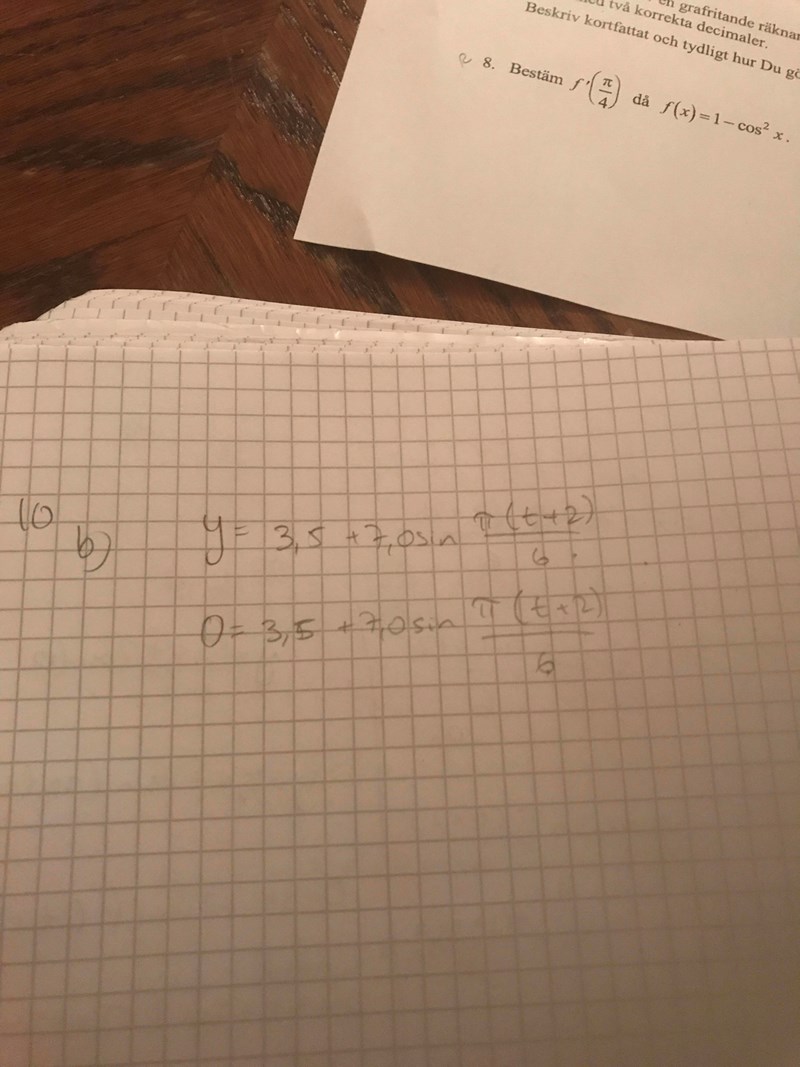 en grafritande räknar
med två korrekta decimaler.
Beskriv kortfattat och tydligt hur Du gö
8. Bestäm f'(π/4) då f(x) = 1 − cos² x.
10
b) y = 3,5 + 7,0 sin π(t+2)/6
0 = 3,5 + 7,0 sin π(t+2)/6